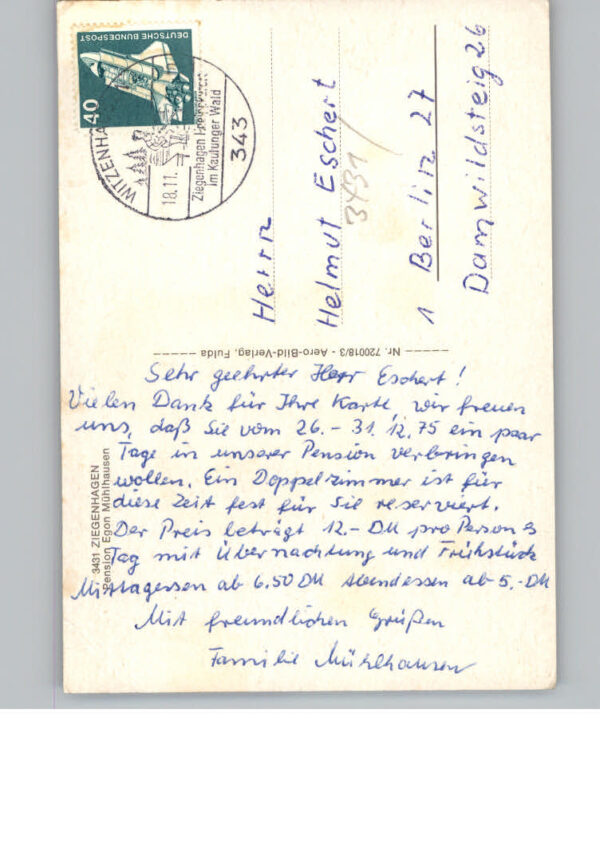 Sehr geehrter Herr Eschert!
Vielen Dank für Ihre Karte, wir freuen
uns, daß Sie vom 26.-31.12.75 ein paar
Tage in unserer Pension verbringen
wollen. Ein Doppelzimmer ist für
diese Zeit fest für Sie reserviert.
Der Preis beträgt 12.- DM pro Person
Tag mit Übernachtung und Frühstück
Mittagessen ab 6.50 DM Abendessen ab 5.- DM
Mit freundlichen Grüßen
Familie Mühlhausen
3431 ZIEGENHAGEN
Pension Egon Mühlhausen
Nr. 720018/3 - Aero-Bild-Verlag, Fulda
Herrn
Helmut Eschert
3431
1 Berlin 27
Damwildsteig 26
DEUTSCHE BUNDESPOST
40
WITZENHA
18.11.
Ziegenhagen
im Kaufunger Wald
343